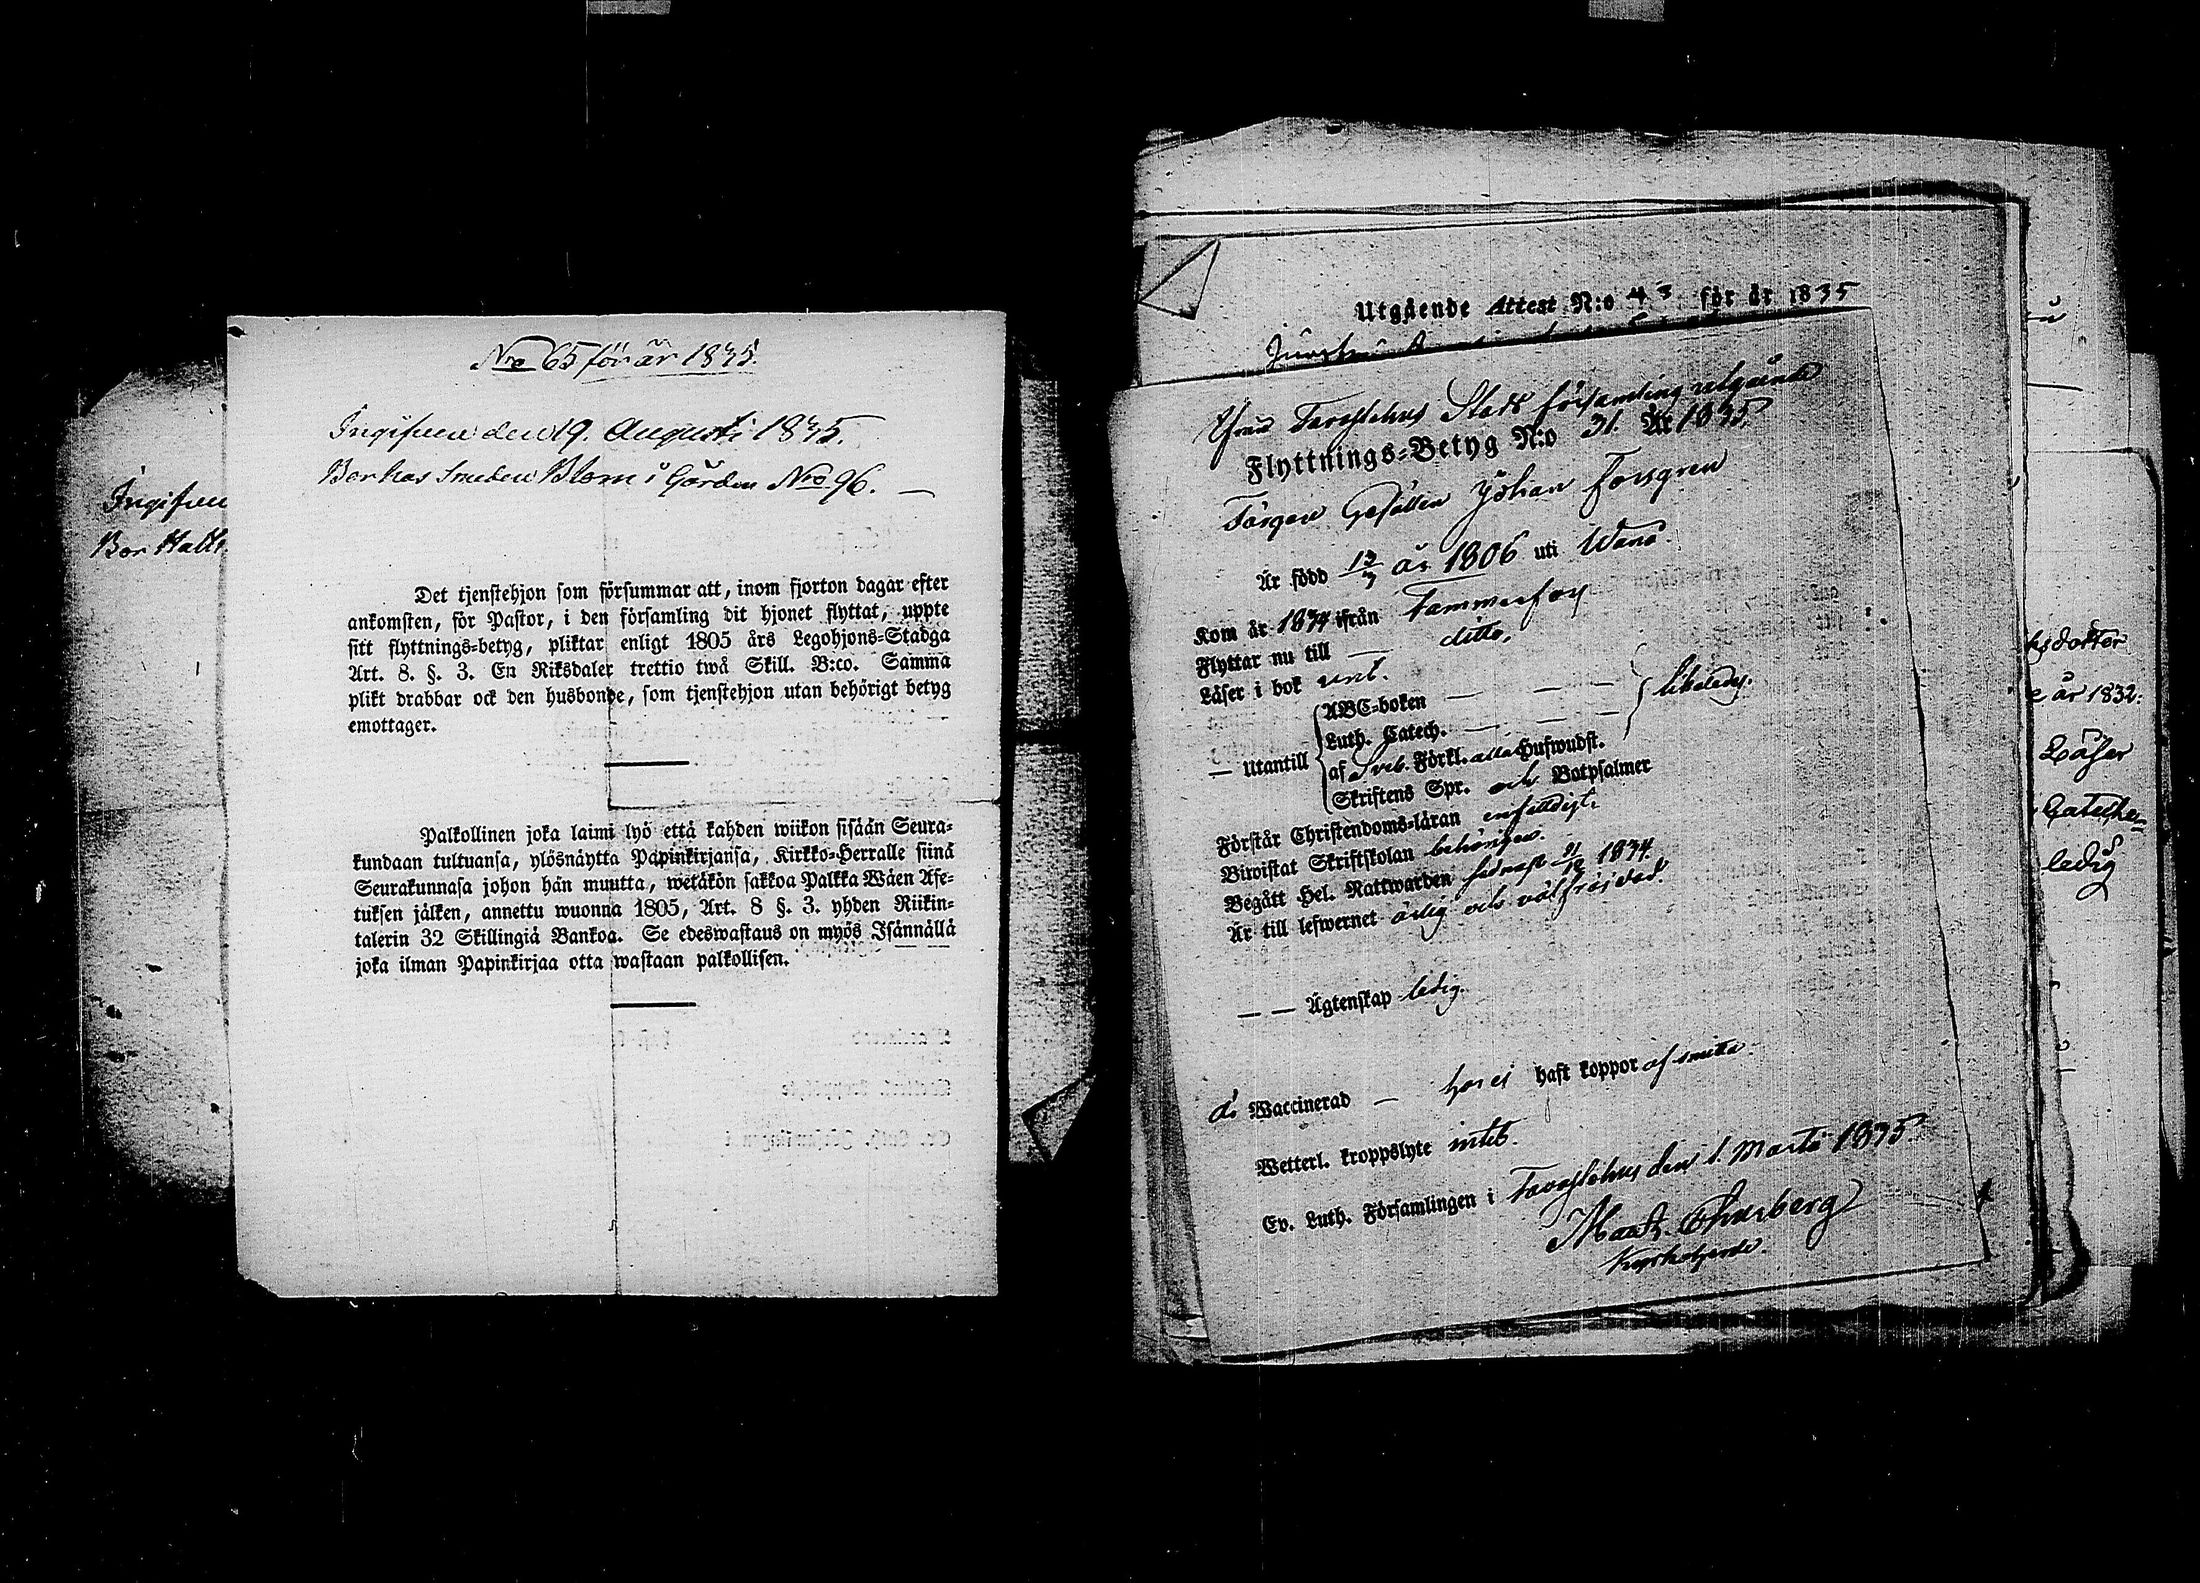 Nro 65 för år 1835.
Ingifven den 19. Augusti 1835.
Bor hos Smeden Blom i Gården Nro 96. —
Det tjenstehjon som försummar att, inom fjorton dagar efter
ankomsten, för Pastor, i den församling dit hjonet flyttat, uppte
sitt flyttnings-betyg, pliktar enligt 1805 års Legohjons-Stadga
Art. 8. §. 3. En Riksdaler trettio twå Skill. B:co. Samma
plikt drabbar ock den husbonde, som tjenstehjon utan behörigt betyg
emottager.
Palkollinen joka laimi lyö että kahden wiikon sisään Seura-
kundaan tultuansa, ylösnäytta Papinkirjansa, Kirkko-Herralle siinä
Seurakunnasa johon hän muutta, wetäkön sakkoa Palkka Wäen Ase-
tuksen jälken, annettu wuonna 1805, Art. 8 §. 3. yhden Riikin-
talerin 32 Skillingiä Bankoa. Se edeswastaus on myös Isännällä
joka ilman Papinkirjaa otta wastaan palkollisen.
Ingifven
Bor
Utgående Attest N:o 43 för år 1835
Ifrån Tavastehus Stads församling utgående
Flyttnings-Betyg N:o 31. År 1835.
Färgare Gesällen Johan Forsgren
Är född 13/7 år 1806 uti Wånå.
Kom år 1834 ifrån Tammerfors
Flyttar nu till — ditto.
Läser i bok
— Utantill
ABC-boken — — —
Luth. Catech. — — —
af Sveb. Förkl. alla Hufwudst.
Skriftens Spr. och Botpsalmer
likaledes.
Förstår Christendoms-läran enfaldigt.
Biwistat Skriftskolan behörigen.
Begått Hel. Nattwarden sednast 21/12 1834.
Är till lefwernet ärlig och välfräjdad.
— — Ägtenskap ledig.
Är Waccinerad — har ej haft koppor af smitta.
Wetterl. kroppslyte intet.
Ev. Luth. Församlingen i Tavastehus den 1. Martii 1835.
Kyrkoherde.
år 1832:
Läser
Cateche-
ledig